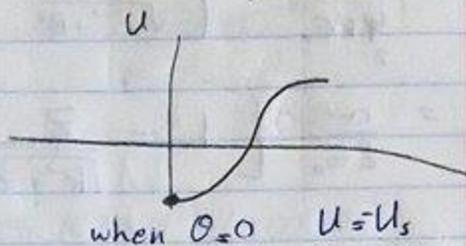 U
when θ=0 U=-Us